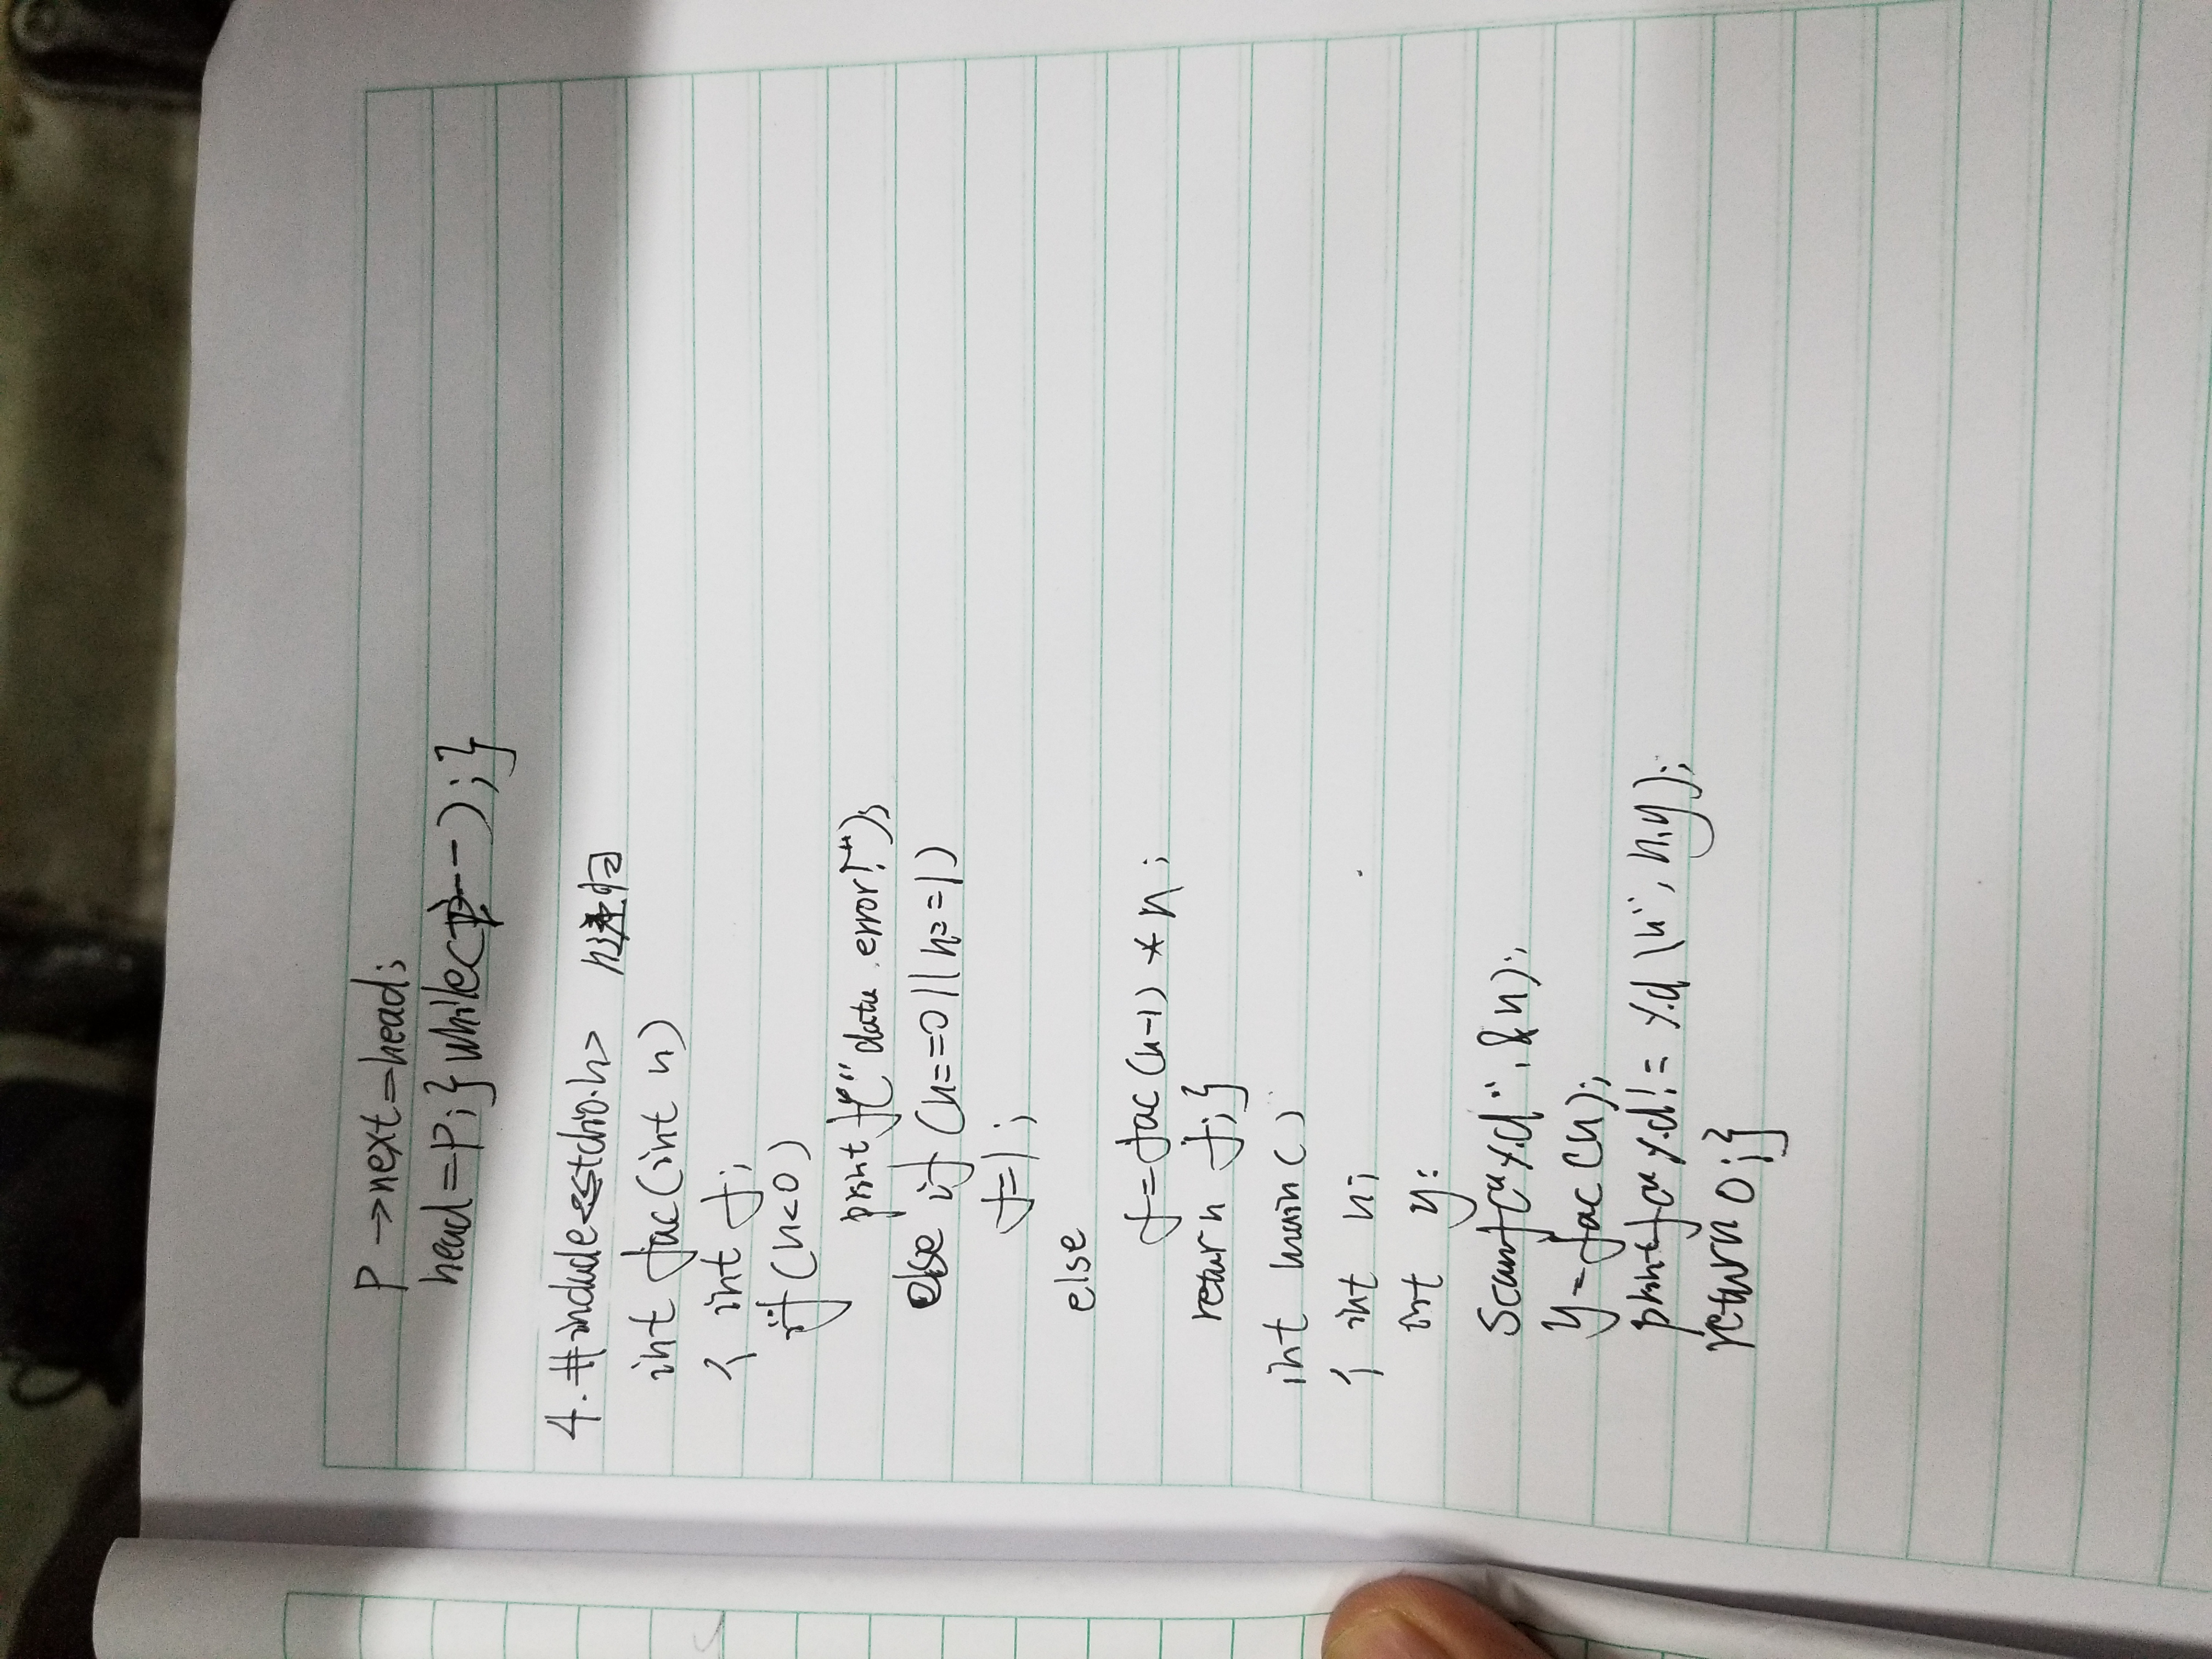 P→next=head;
head=P;}while(--);}
4. #include<stdio.h> n递归
int fac(int n)
{ int f;
if(n<0)
printf("data error!");
else if (n==0||n==1)
f=1;
else
f=fac(n-1)*n;
return f;}
int main()
{ int n;
int y:
scanf("%d",&n);
y=fac(n);
printf("%d!=%d\n",n,y);
return 0;}